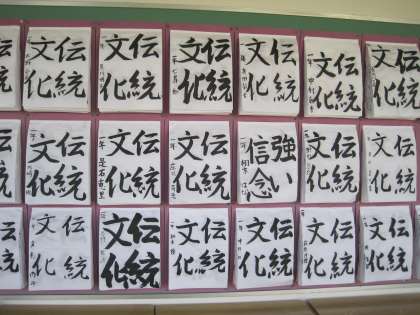 伝統
伝統
文化
伝統
文化
伝統
文化
伝統
文化
伝統
文化
伝統
文化
伝統
伝統
文化
伝統
文化
伝統
文化
強い
信念
伝統
文化
伝統
文化
伝統
伝統
文化
伝統
文化
伝統
文化
伝統
文化
伝統
文化
伝統
文化